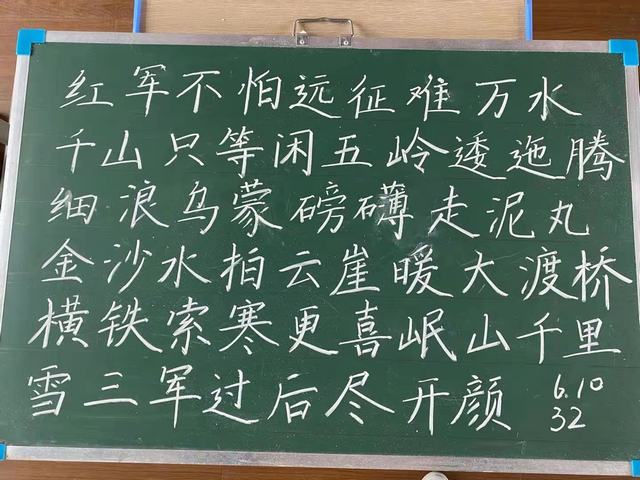 红军不怕远征难万水
千山只等闲五岭逶迤腾
细浪乌蒙磅礴走泥丸
金沙水拍云崖暖大渡桥
横铁索寒更喜岷山千里
雪三军过后尽开颜 6.10
32